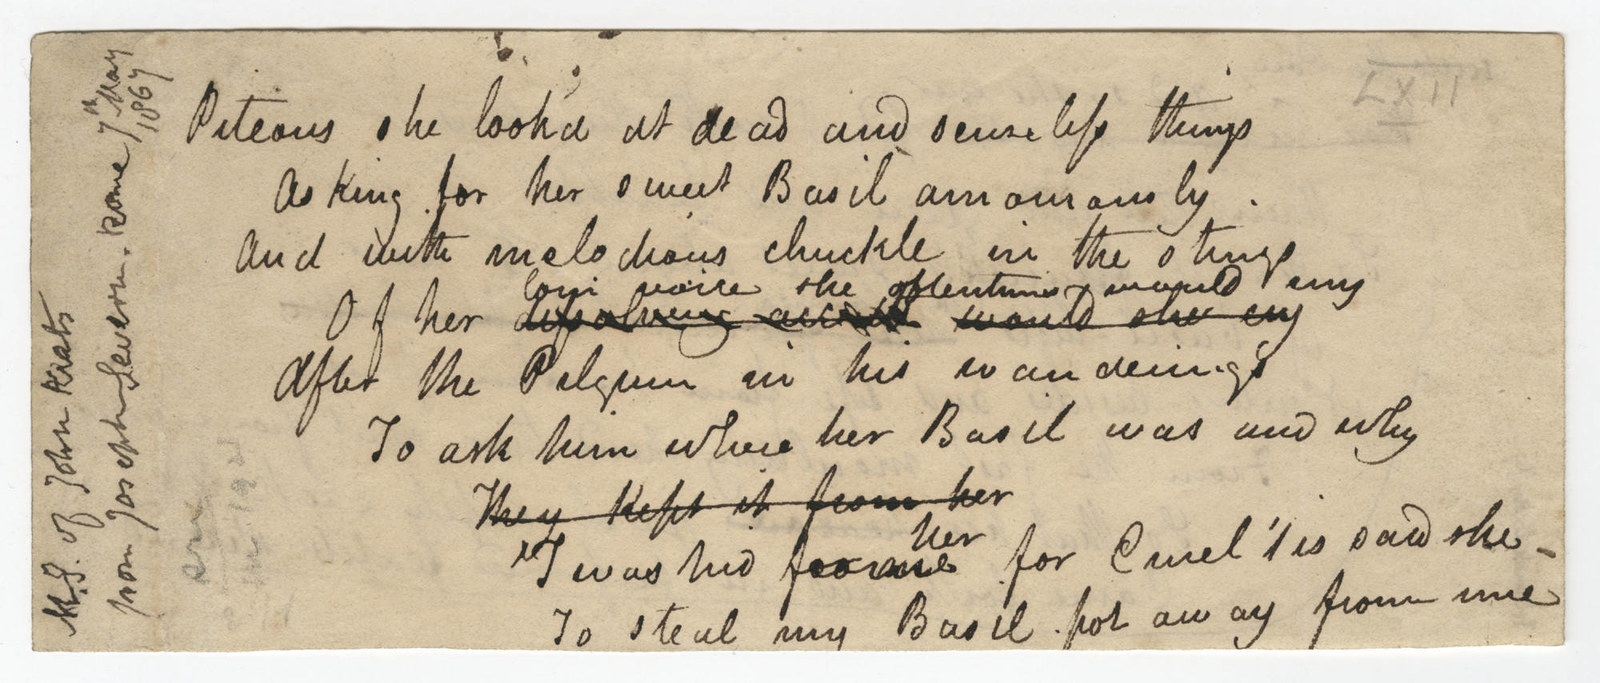 Piteous she look'd at dead and senseless things
Asking for her sweet Basil amourously.
And with melodious chuckle in the strings
Lorn voice she oftentimes would cry
Of her dissolving accent would she cry
After the Pilgrim in his wanderings
To ask him where her Basil was and why
They kept it from her
'T was hid from her for Cruel 'tis said she -
To steal my Basil pot away from me
M.S. of John Keats
from Joseph Severn. Rome 7th May
1867
LXII